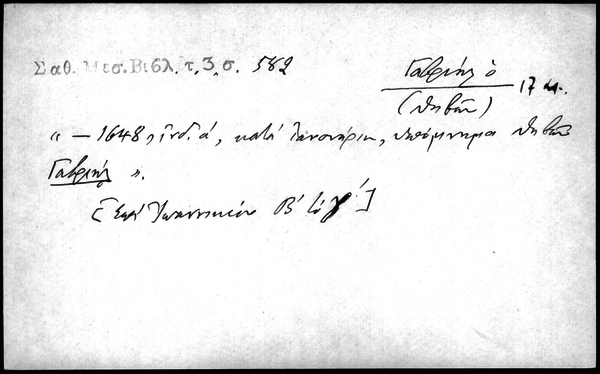 Σαθ. Μεσ. Βιβλ. τ. 3, σ. 582
Γαβριήλ ὁ
(Θηβῶν)
17 αι.
« — 1648, ἰνδ. α', κατά Ἰανουάριον, ὑπόμνημα Θηβῶν
Γαβριήλ ».
[Ἐπί Ἰωαννικίου Β' τό γ']